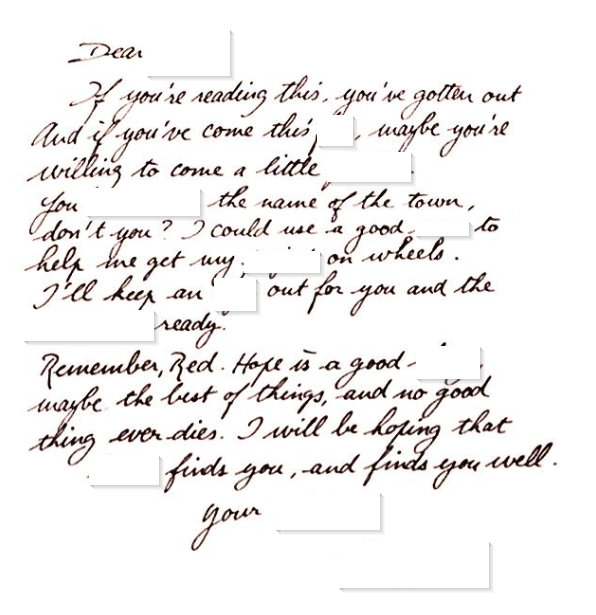 Dear
If you're reading this, you've gotten out
And if you've come this , maybe you're
willing to come a little .
You the name of the town,
don't you? I could use a good to
help me get my on wheels.
I'll keep an out for you and the
ready.
Remember, Red. Hope is a good ,
maybe the best of things, and no good
thing ever dies. I will be hoping that
finds you, and finds you well.
Your